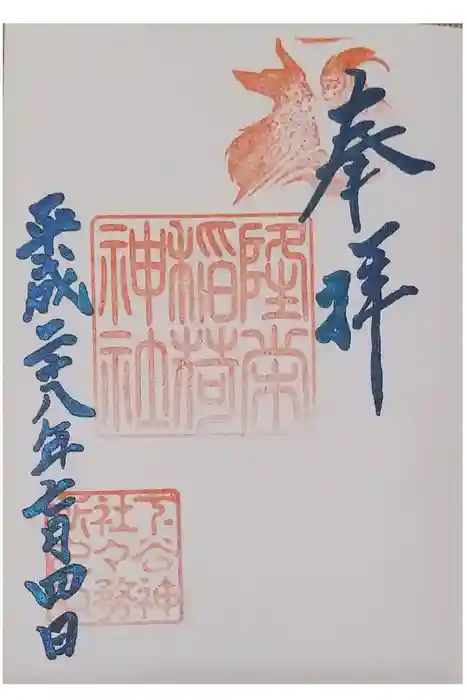 奉拝
隆栄稲荷神社
平成二十八年七月四日
下谷神
社々務
所之印